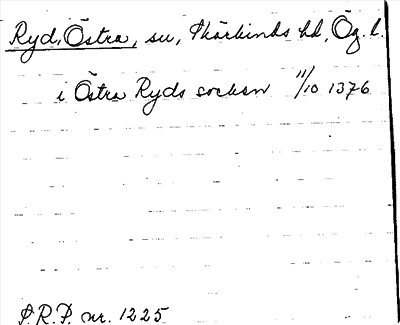 Ryd, Östra, sn, Skärkinds hd, Ög. l.
i Östra Ryds socken 11/10 1376
P.R.P. nr. 1225